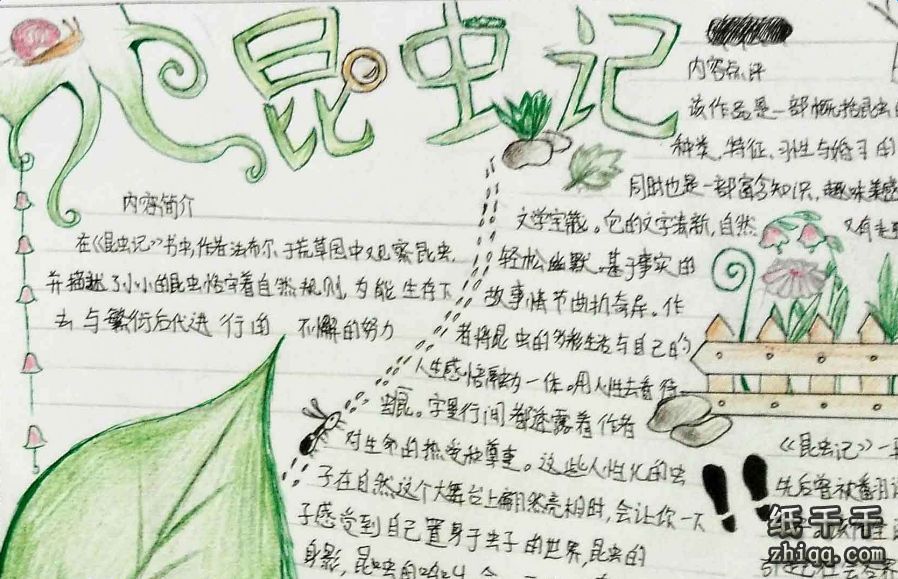 昆虫记
内容简介
在《昆虫记》书中,作者法布尔于荒草园中观察昆虫
并描越了小小的昆虫恪守着自然规则,为能生存下
去与繁衍后代进行的 不懈的努力
内容点评
该作品是一部概括昆虫的
种类、特征、习性与婚习的
同时也是一部富含知识、趣味美感
文学宝藏。它的文字清新,自然
轻松幽默。基于事实的
故事情节曲折奇异。作
者将昆虫的多彩生活与自己的
人生感悟融为一体。用人性去看待
昆。字里行间都透露着作者
对生命的热爱和尊重。这些人性化的虫
子在自然这个大舞台上翩然亮相时,会让你一下
子感觉到自己置身于虫子的世界,昆虫的
身影,昆虫的
《昆虫记》一
先后曾被翻译
纸千千
zhiqq.com